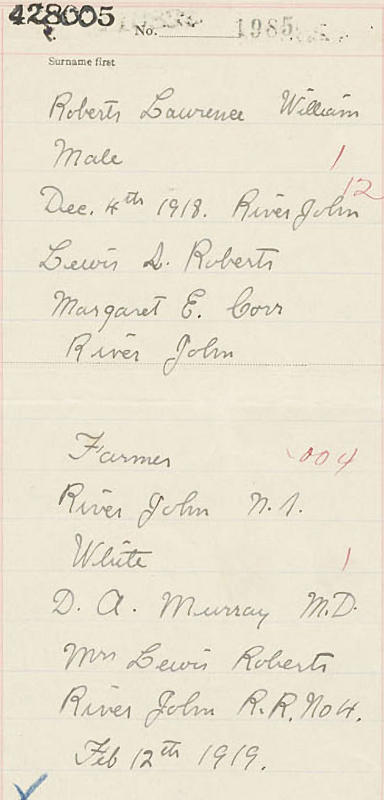 428005
No. 1985
Surname first
Roberts Lawrence William
Male 1
12
Dec. 4th 1918. River John
Lewis D. Roberts
Margaret E. Corr
River John
Farmer 004
River John N.S.
White 1
D. A. Murray M.D.
Mrs Lewis Roberts
River John R.R. No 4.
Feb 12th 1919.